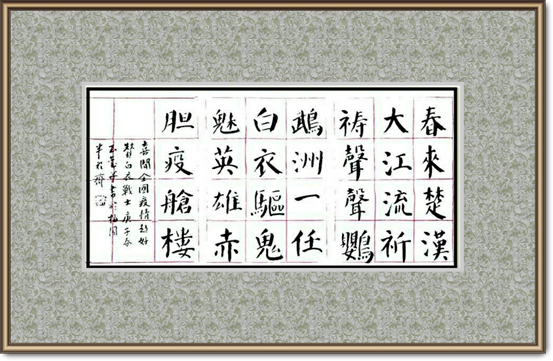 春來楚漢
大江流祈
祷聲聲鸚
鵡洲一任
白衣驅鬼
魅英雄赤
胆疫艙樓
喜聞全國疫情趋好
白衣戰士庚子春